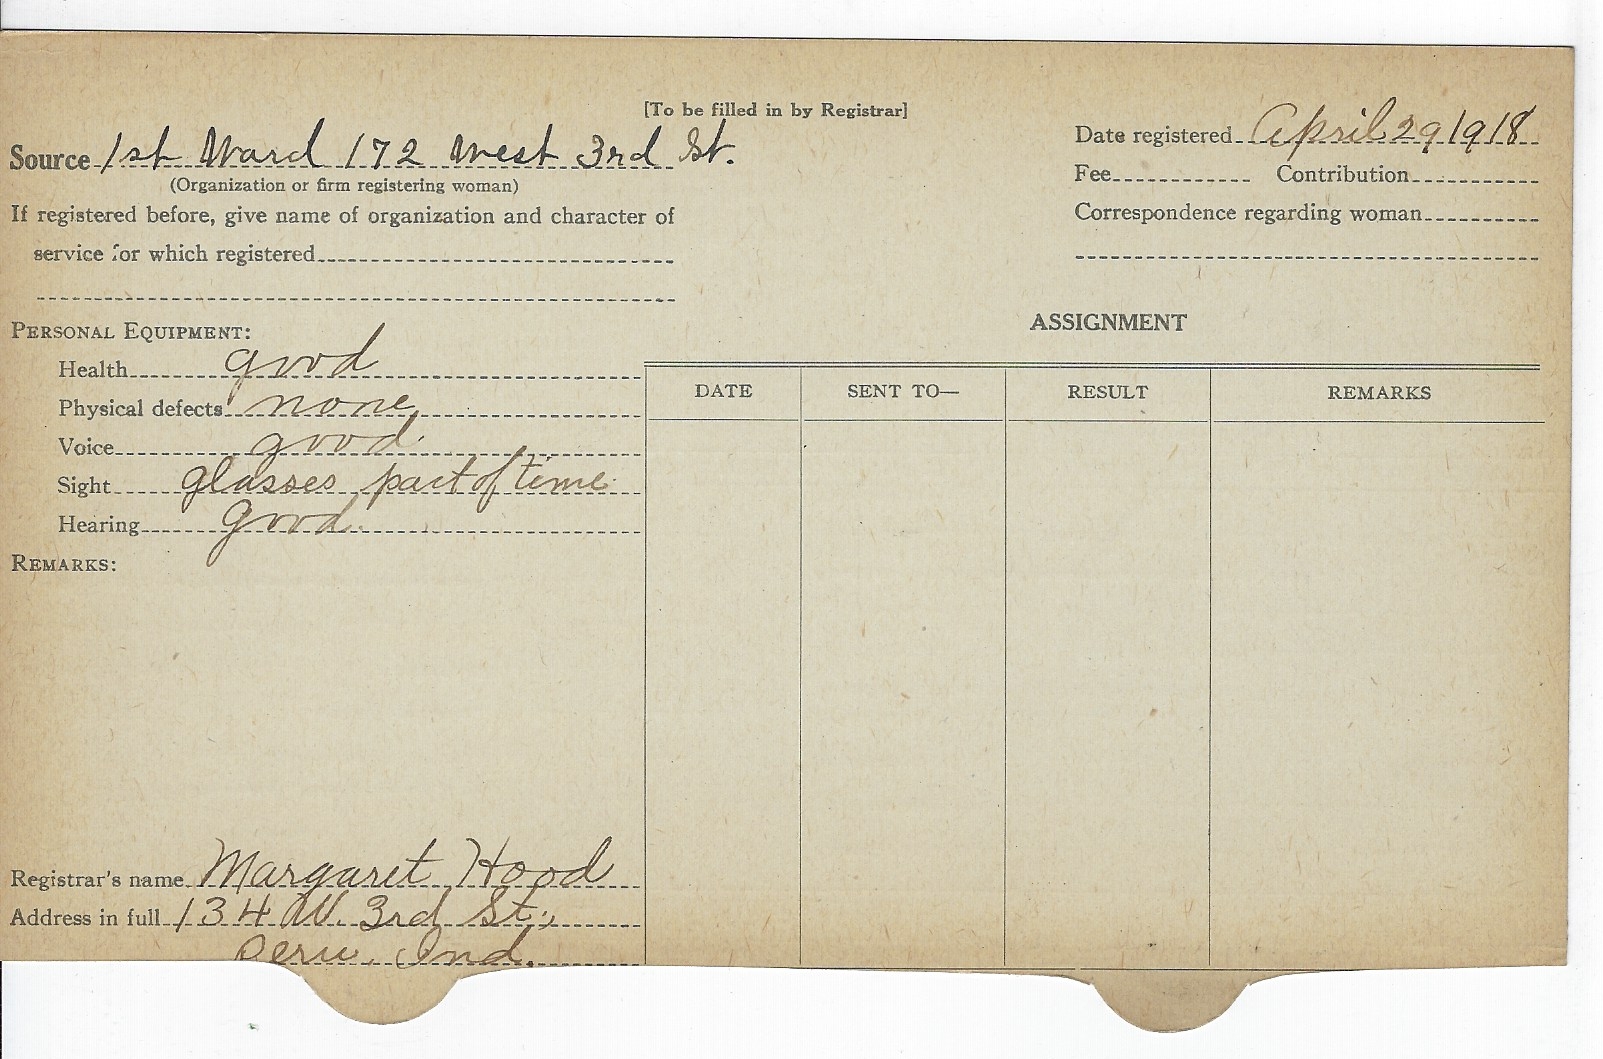 [To be filled in by Registrar]
Source 1st Ward 172 West 3rd St.
(Organization or firm registering woman)
If registered before, give name of organization and character of
service for which registered
Date registered April 29 1918
Fee Contribution
Correspondence regarding woman
PERSONAL EQUIPMENT:
Health good
Physical defects none
Voice good
Sight glasses part of time
Hearing Good
REMARKS:
Registrar's name Margaret Hood
Address in full 134 W. 3rd St.,
Peru, Ind.
ASSIGNMENT
DATE SENT TO— RESULT REMARKS